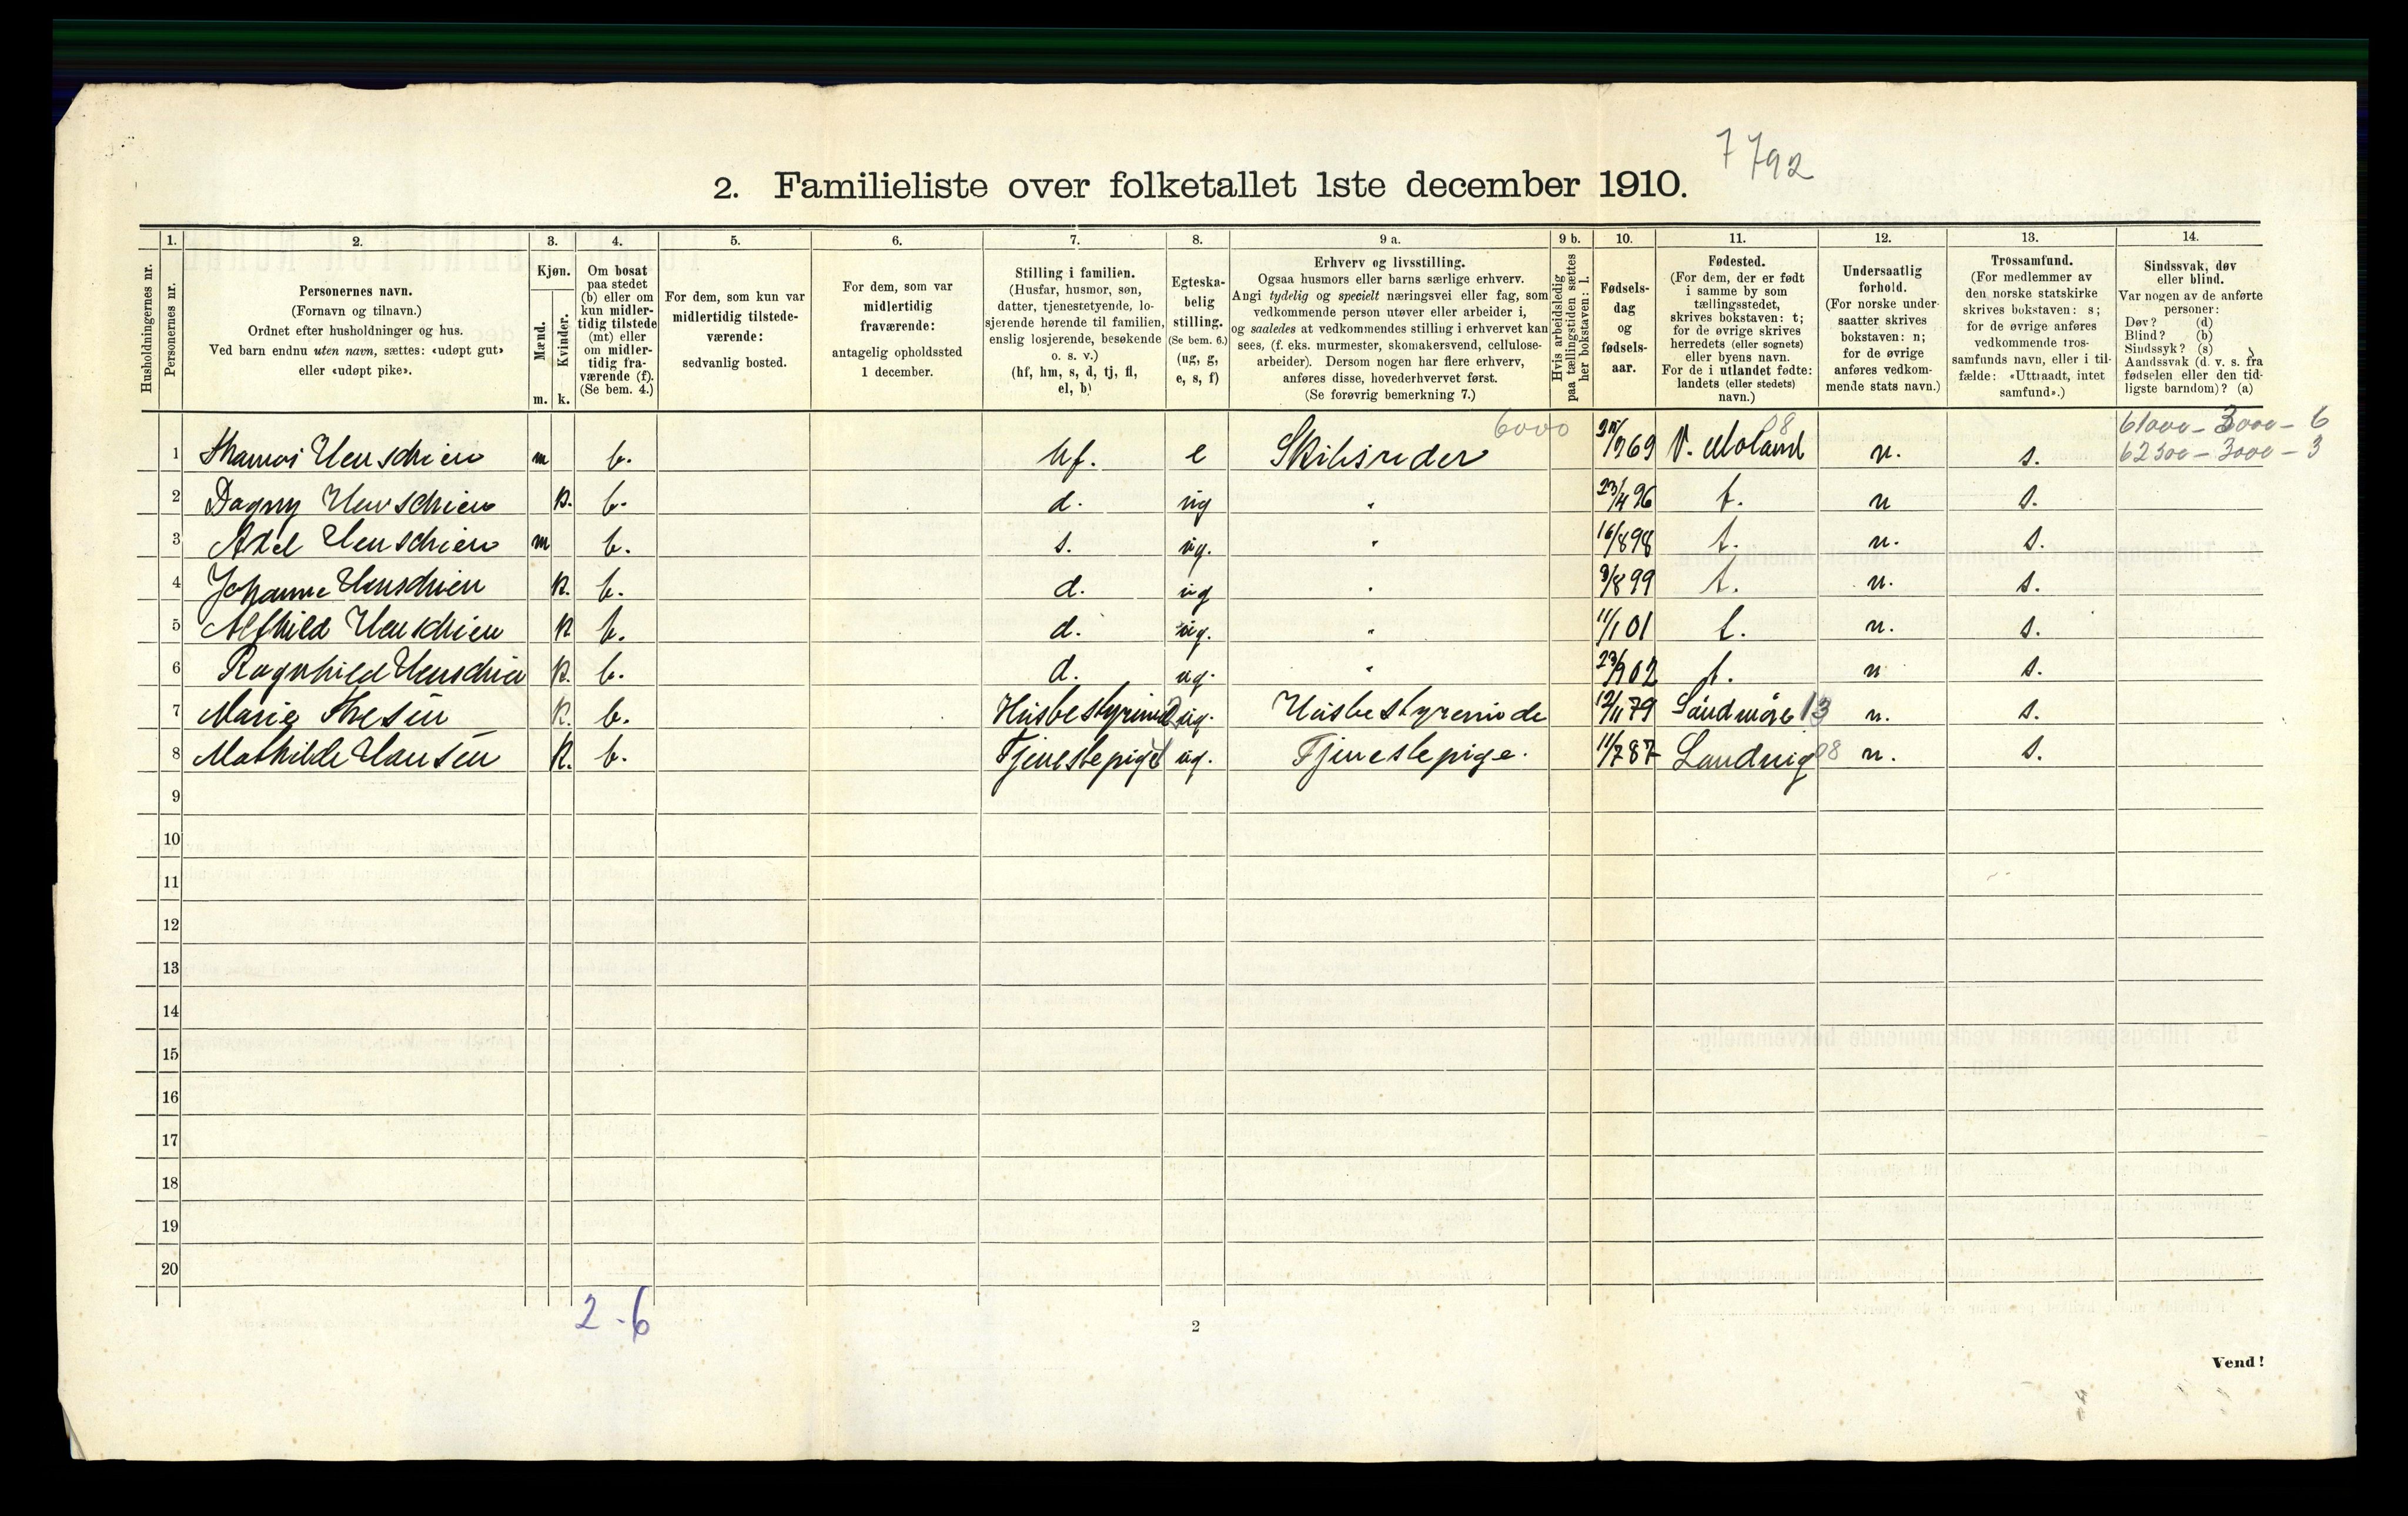 7 792
2. Familieliste over folketallet 1ste december 1910.
1. 2. 3. 4. 5. 6. 7. 8. 9 a. 9 b. 10. 11. 12. 13. 14.
Husholdningernes nr.
Personernes nr.
Personernes navn.
(Fornavn og tilnavn.)
Ordnet efter husholdninger og hus.
Ved barn endnu uten navn, sættes: «udøpt gut»
eller «udøpt pike».
Kjøn.
Mænd.
Kvinder.
m. k.
Om bosat
paa stedet
(b) eller om
kun midler-
tidig tilstede
(mt) eller
om midler-
tidig fra-
værende (f).
(Se bem. 4.)
For dem, som kun var
midlertidig tilstede-
værende:
sedvanlig bosted.
For dem, som var
midlertidig
fraværende:
antagelig opholdssted
1 december.
Stilling i familien.
(Husfar, husmor, søn,
datter, tjenestetyende, lo-
sjerende hørende til familien,
enslig losjerende, besøkende
o. s. v.)
(hf, hm, s, d, tj, fl,
el, b)
Egteska-
belig
stilling.
(Se bem. 6.)
(ug, g,
e, s, f)
Erhverv og livsstilling.
Ogsaa husmors eller barns særlige erhverv.
Angi tydelig og specielt næringsvei eller fag, som
vedkommende person utøver eller arbeider i,
og saaledes at vedkommendes stilling i erhvervet kan
sees, (f. eks. murmester, skomakersvend, cellulose-
arbeider). Dersom nogen har flere erhverv,
anføres disse, hovederhvervet først.
(Se forøvrig bemerkning 7.)
Hvis arbeidsledig
paa tællingstiden sættes
her bokstaven: l.
Fødsels-
dag
og
fødsels-
aar.
Fødested.
(For dem, der er født
i samme by som
tællingsstedet,
skrives bokstaven: t;
for de øvrige skrives
herredets (eller sognets)
eller byens navn.
For de i utlandet fødte:
landets (eller stedets)
navn.)
Undersaatlig
forhold.
(For norske under-
saatter skrives
bokstaven: n;
for de øvrige
anføres vedkom-
mende stats navn.)
Trossamfund.
(For medlemmer av
den norske statskirke
skrives bokstaven: s;
for de øvrige anføres
vedkommende tros-
samfunds navn, eller i til-
fælde: «Uttraadt, intet
samfund».)
Sindssvak, døv
eller blind.
Var nogen av de anførte
personer:
Døv? (d)
Blind? (b)
Sindssyk? (s)
Aandssvak (d. v. s. fra
fødselen eller den tid-
ligste barndom)? (a)
6000 08 61000 - 3000 - 6
1 Thomas Henschien m b. hf. e Skibsreder 69 V. Moland n. s. 62500 - 3000 - 3
2 Dagny Henschien k. b. d. ug " 23/4 96 t. n s.
3 Axel Henschien m b. s. ug. " 16/8 98 t. n. s.
4 Johanne Henschien k. b. d. ug " 9/8 99 t. n. s.
5 Alfhild Henschien k b. d. ug. " 11/1 01 t. n. s.
6 Ragnhild Henschien k. b. d. ug. " 02 t. n s.
7 Marie Thesen k. b. Husbestyrinde ug. Husbestyrerinde 12/11 79 Søndmøre 13 n. s.
8 Mathilde Hansen k. b. Tjenestepige ug. Tjenestepige. 11/7 87 Landvig 08 n. s.
9
10
11
12
13
14
15
16
17
18
19
20
2 - 6
2
Vend!